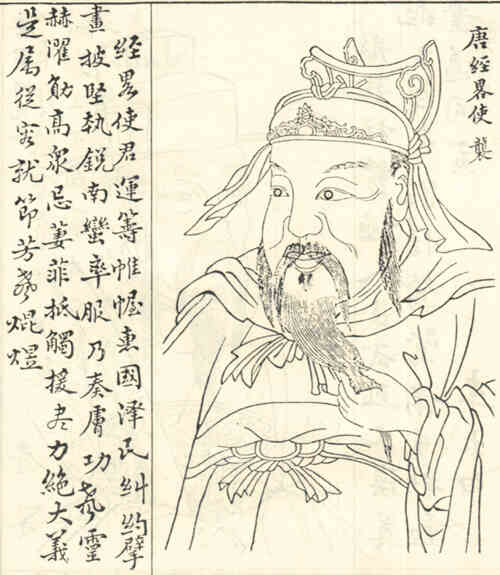 唐經畧使 襲
經畧使君運籌帷幄惠國澤民糾約擘
畫披堅執銳南蠻率服乃奏膚功聲靈
赫濯勛高衆忌萋菲抵觸援尽力絶大義
是属從容就節芳聲焜煌